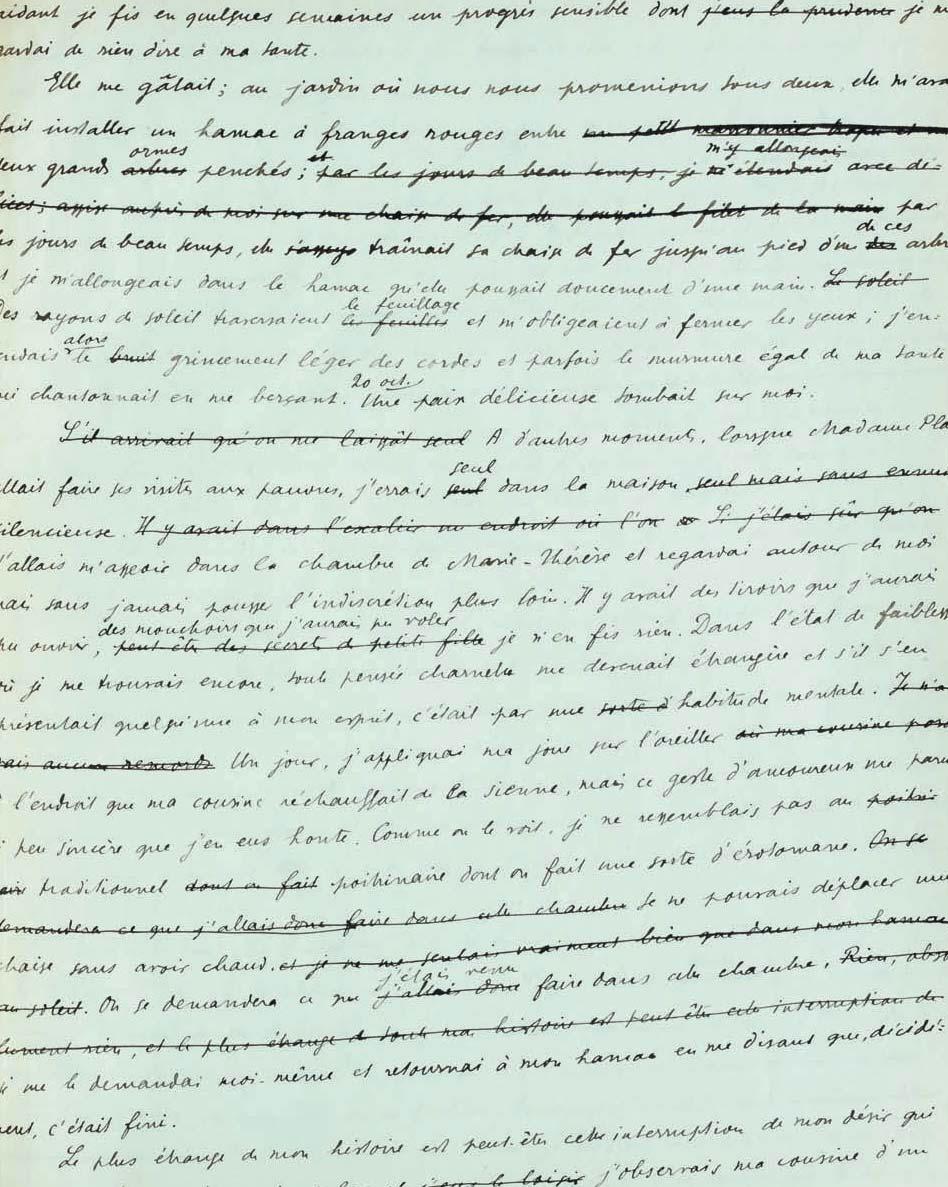 aidant je fis en quelques semaines un progrès sensible dont j'eus la prudence je m
gardai de rien dire à ma tante.
Elle me gâtait ; au jardin où nous nous promenions tous deux, elle m'ava
fait installer un hamac à franges rouges entre un petit marronnier
ormes et m'y allongeais
deux grands arbres penchés ; par les jours de beau temps, je m'étendais avec dé-
lices ; assise auprès de moi sur une chaise de fer, elle poussait le filet de la main par
de ces
les jours de beau temps, elle traînait sa chaise de fer jusqu'au pied d'un des arbre
et je m'allongeais dans le hamac qu'elle poussait doucement d'une main. Le soleil
le feuillage
Des rayons de soleil traversaient les feuilles et m'obligeaient à fermer les yeux ; j'en-
alors
tendais le bruit grincement léger des cordes et parfois le murmure égal de ma tante
20 oct.
qui chantonnait en me berçant. Une paix délicieuse tombait sur moi.
S'il arrivait qu'on me laissât seul A d'autres moments, lorsque Madame Pla
seul
allait faire ses visites aux pauvres, j'errais seul dans la maison seul mais sans ennui
silencieuse. Il y avait dans l'escalier un endroit où l'on Si j'étais sûr qu'on
J'allais m'asseoir dans la chambre de Marie-Thérèse et regardai autour de moi
mais sans jamais pousser l'indiscrétion plus loin. Il y avait des tiroirs que j'aurais
des mouchoirs que j'aurais pu voler
pu ouvrir, peut-être des secrets de petite fille je n'en fis rien. Dans l'état de faibless
où je me trouvais encore, toute pensée charnelle me devenait étrangère et s'il s'en
présentait quelqu'une à mon esprit, c'était par une sorte d'habitude mentale. Je n'a
vais aucun remords Un jour, j'appliquai ma joue sur l'oreiller où ma cousine pos
à l'endroit que ma cousine réchauffait de la sienne, mais ce geste d'amoureux me paru
si peu sincère que j'en eus honte. Comme on le voit, je ne ressemblais pas au poitri
naire traditionnel dont on fait poitrinaire dont on fait une sorte d'érotomane. On se
demandera ce que j'allais donc faire dans cette chambre Je ne pouvais déplacer une
chaise sans avoir chaud. et je ne me sentais vraiment bien que dans mon hamac
j'étais venu
au soleil. On se demandera ce que j'allais donc faire dans cette chambre. Rien, abso
lument rien, et le plus étrange de toute mon histoire est peut-être cette interruption de
Je me le demandai moi-même et retournai à mon hamac en me disant que, décidé-
ment, c'était fini.
Le plus étrange de mon histoire est peut-être cette interruption de mon désir qui
j'eus le loisir j'observais ma cousine d'un